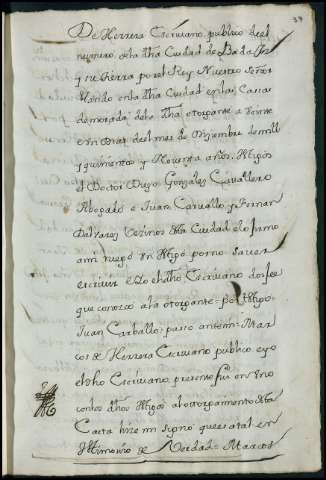 39
De Herrera Escrivano publico del
numero de la dha Ciudad de Badajoz
y su tierra por el Rey Nuestro Señor
estando en la dha Ciudad en las Cassas
de morada dela dha otorgante a Veinte
e Un dias del mes de Diziembre de mill
y quinientos y Noventa años. Testigos
el Doctor Diego Gonzales Cavallero
Abogado e Juan Carvallo y Fernan
Dalvarez Vezinos desta Ciudad e lo firmo
a mi ruego Un testigo por no saver
escrivir e Yo el dho Escrivano doy fee
que conozco a la otorgante = por testigo
Juan Carballo: passo ante mi= Mar
cos de Herrera Escrivano publico e yo
el dho Escrivano, presente fui en Uno
con los dhos testigos al otorgamiento desta
Carta hize mi signo que es a tal en
testimonio de Verdad = Marcos